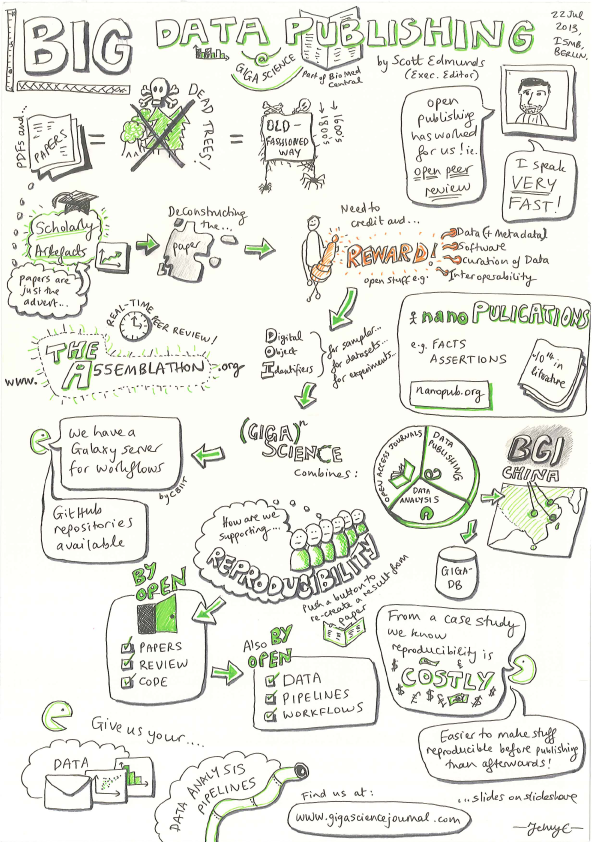 BIG DATA PUBLISHING
@ GIGA SCIENCE
Part of BioMed
Central
by Scott Edmunds
(Exec. Editor)
22 Jul
2013,
ISMB,
BERLIN.
PDFs and...
PAPERS
=
DEAD
TREES!
=
OLD-
FASHIONED
WAY
1600s
1800s
open
publishing
has worked
for us! ie.
open peer
review
I speak
VERY
FAST!
Scholarly
Artefacts
papers are
just the
advert...
Deconstructing
the...
paper
Need to
credit and...
REWARD!
open stuff e.g.
Data (+ Metadata)
Software
Curation of Data
Interoperability
REAL-TIME
PEER REVIEW!
www.
THE
ASSEMBLATHON
.org
Digital
Object
Identifiers
for samples...
for datasets...
for experiments...
nano PULICATIONS
e.g. FACTS
ASSERTIONS
nanopub.org
literature
We have a
Galaxy server
for workflows
by CBIIT
GitHub
repositories
available
(GIGA)ⁿ
SCIENCE
combines:
OPEN ACCESS JOURNALS
DATA
PUBLISHING
DATA
ANALYSIS
BGI
CHINA
GIGA-
DB
How are we
supporting....
REPRODUCIBILITY
Push a button to
re-create a result from
paper
BY OPEN
PAPERS
REVIEW
CODE
Also BY
OPEN
DATA
PIPELINES
WORKFLOWS
From a case study
we know
reproducibility is
$ £
COSTLY
Easier to make stuff
reproducible before publishing
than afterwards!
Give us your....
DATA
DATA ANALYSIS
PIPELINES
Find us at:
www.gigasciencejournal.com
...slides on slideshare